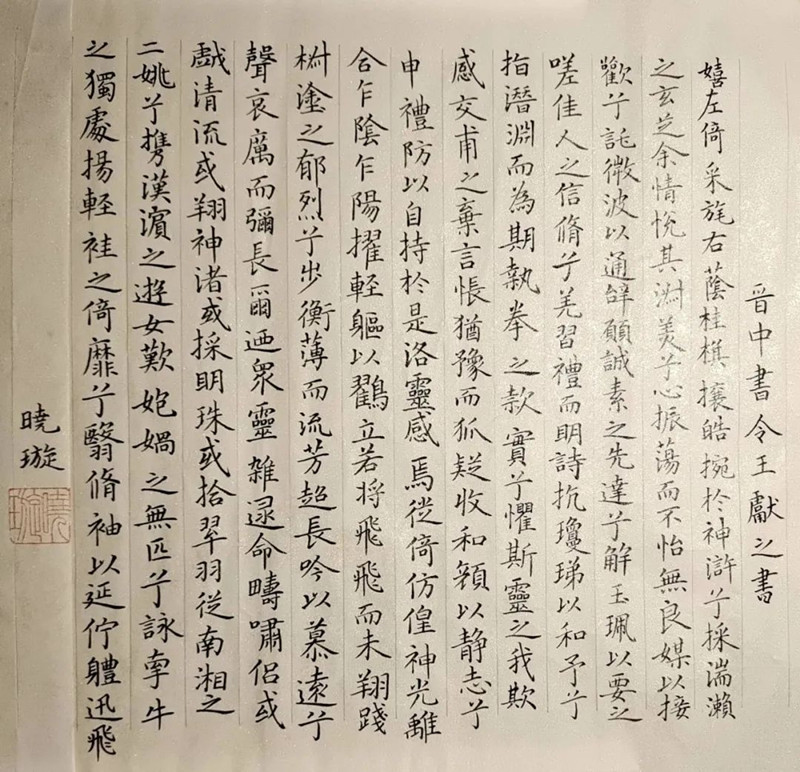 晉中書令王獻之書
嬉左倚采旄右蔭桂棋攘皓捥於神滸兮採湍瀨
之玄芝余情悅其淑美兮心振蕩而不怡無良媒以接
歡兮託微波以通辭願誠素之先達兮解玉珮以要之
嗟佳人之信脩兮羌習禮而明詩抗瓊珶以和予兮
指潛淵而為期執拳之款實兮懼斯靈之我欺
感交甫之棄言悵猶豫而狐疑收和顏以静志兮
申禮防以自持於是洛靈感焉從倚仿偟神光離
合乍陰乍陽擢輕軀以鶴立若将飛飛而未翔踐
椒塗之郁烈兮步衡薄而流芳超長吟以慕遠兮
聲哀厲而彌長爾迺眾靈雜遝命疇嘯侶或
戲清流或翔神渚或採明珠或拾翠羽從南湘之
二姚兮攜漢濱之遊女歎匏媧之無匹兮詠牽牛
之獨處揚輕袿之倚靡兮翳脩袖以延佇軆迅飛
曉璇